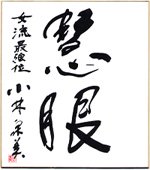 慧眼
女流最強位
小林泉美